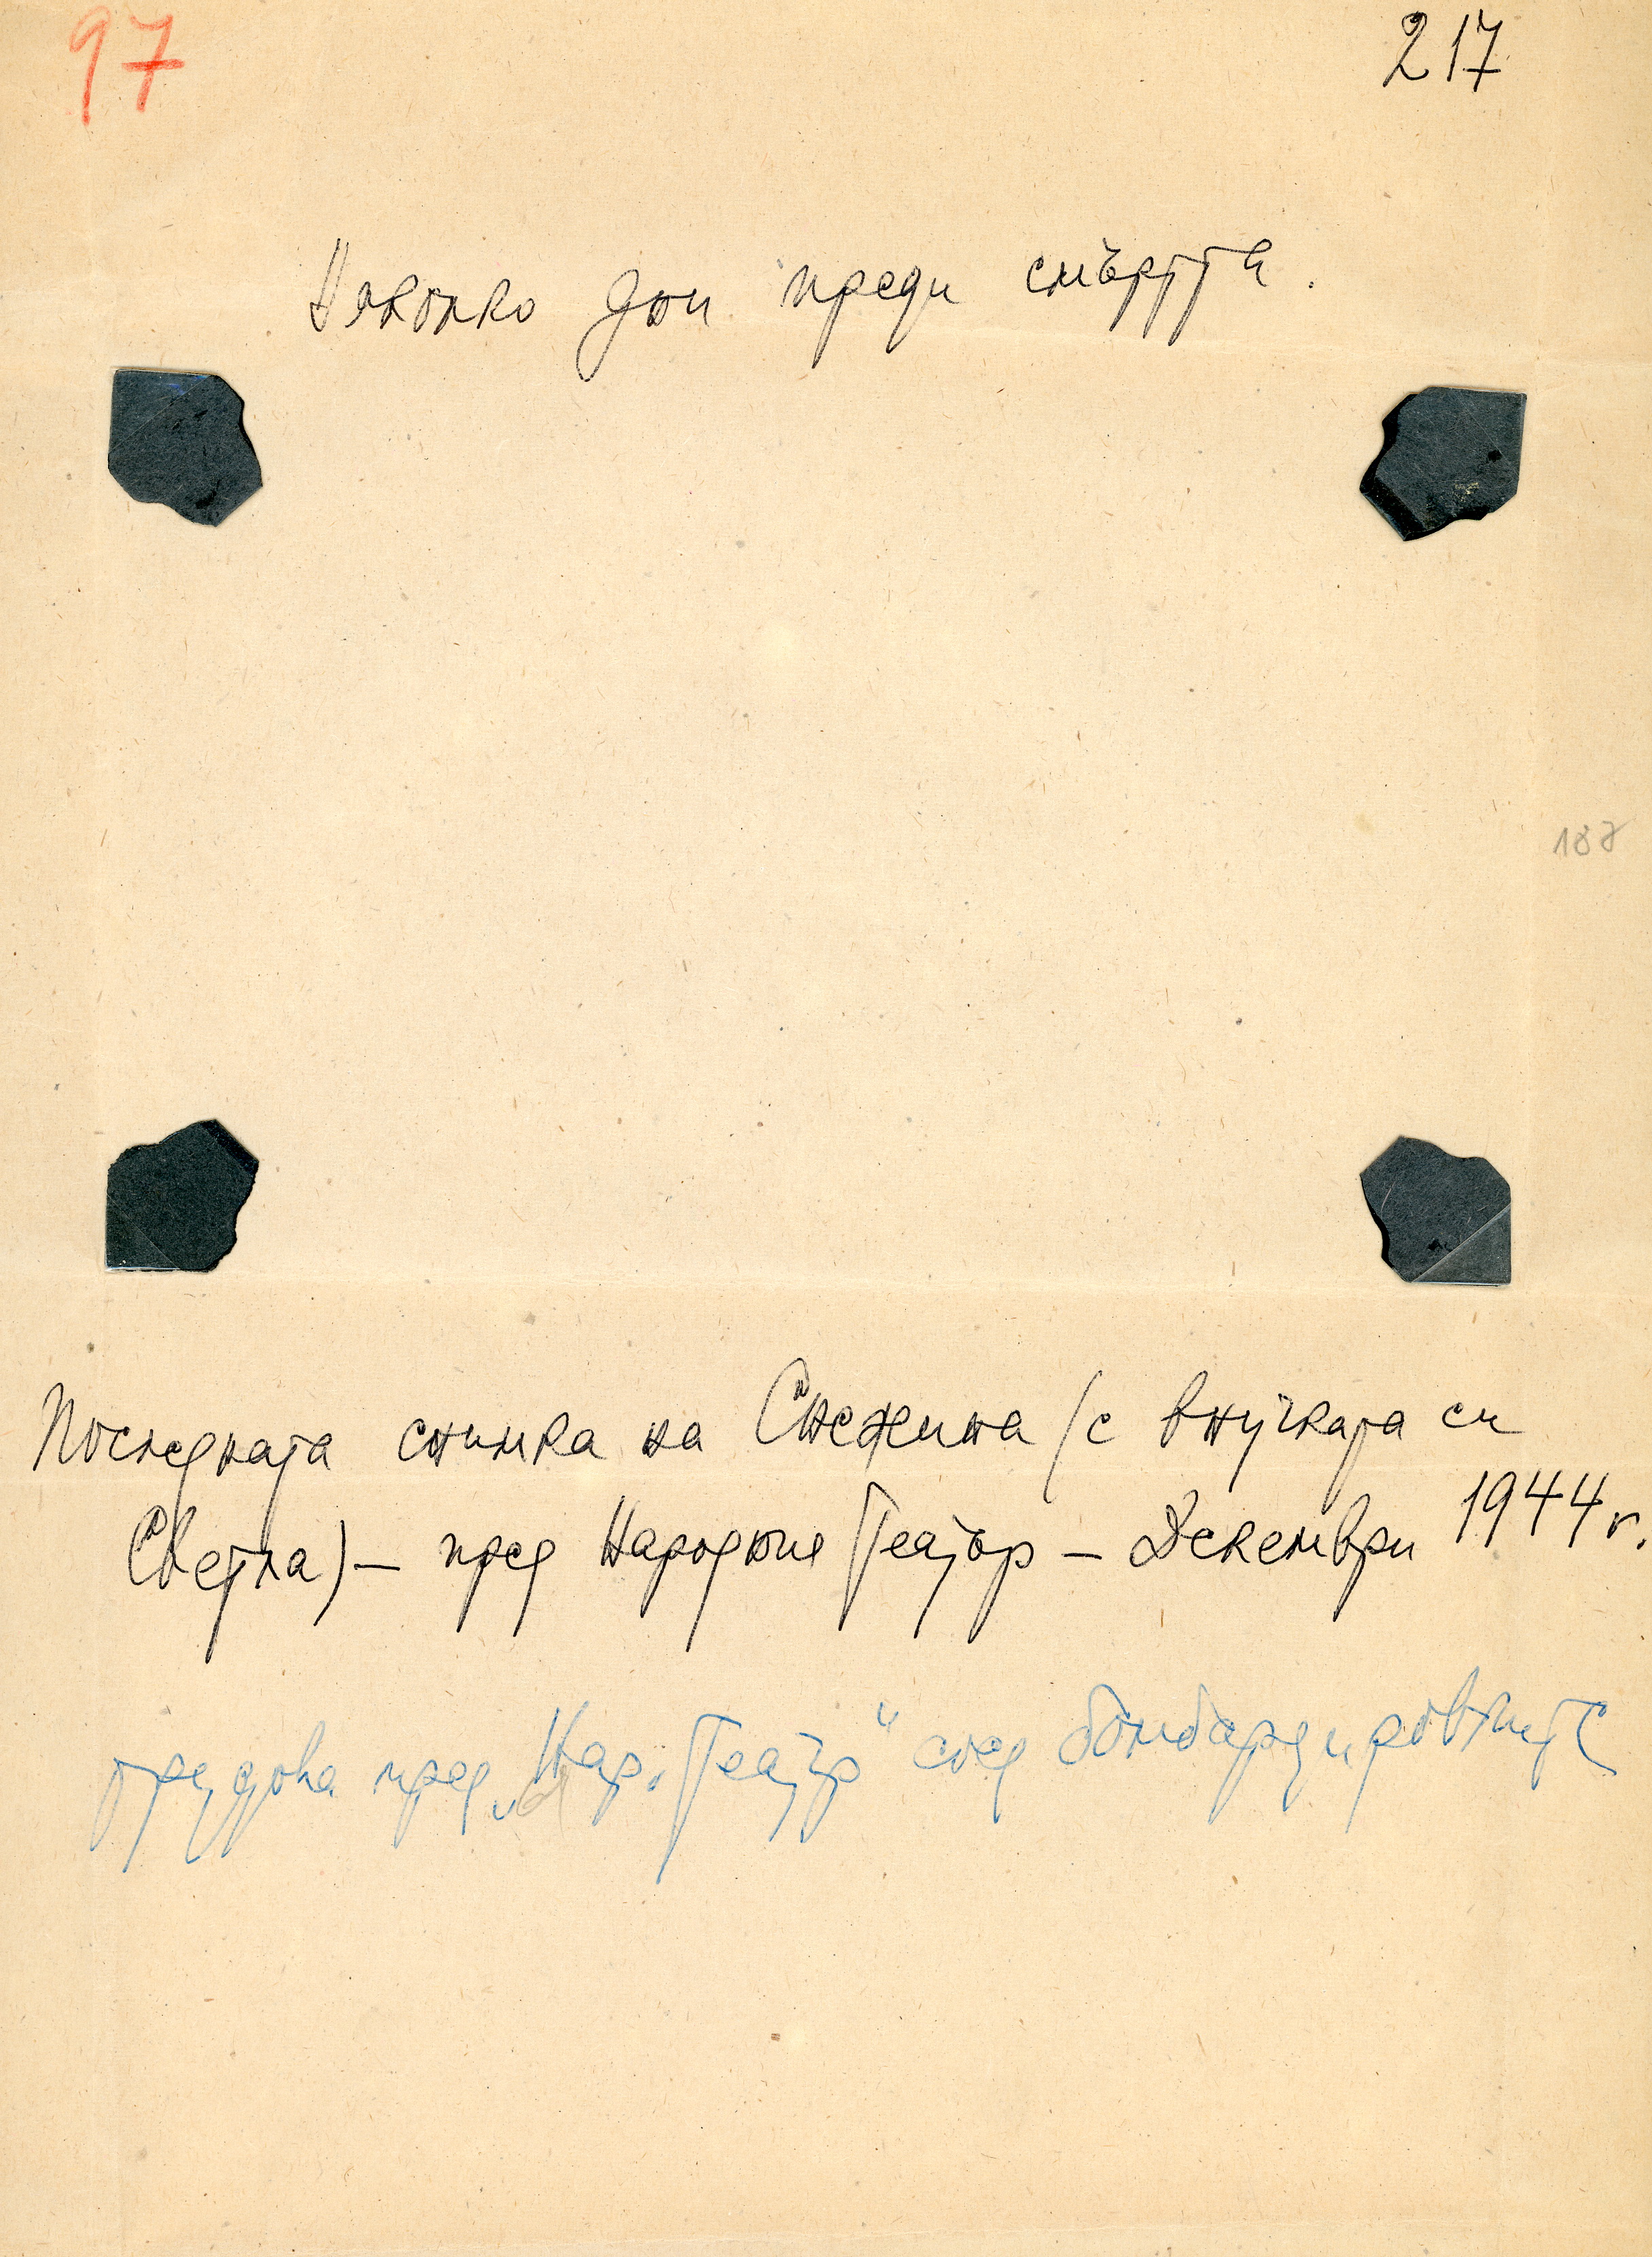 97
217
Няколко дни преди смъртта.
187
Последната снимка на Снежина (с внучката си
Светла) – пред Народния Театър – Декември 1944 г.
пред „Нар. Театър" след бомбардировките